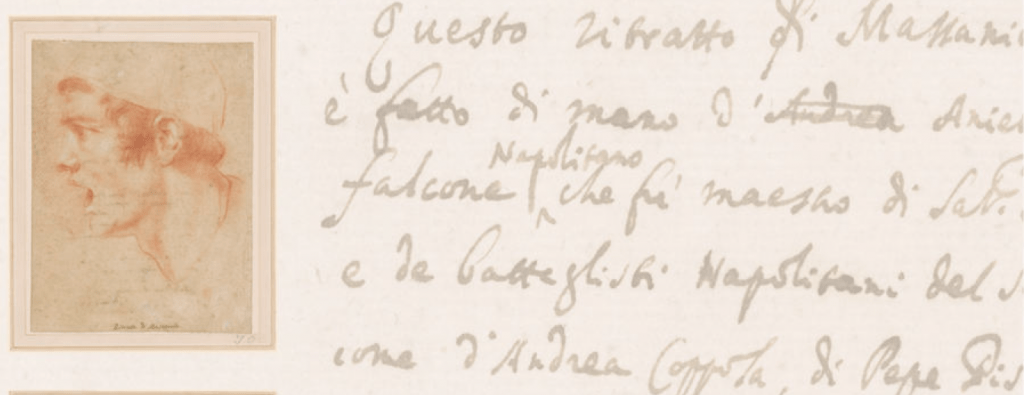 Questo ritratto di Massani
è fatto di mano d' Andrea Aniel
Napolitano
falcone che fù maestro di Salr.
e de battaglisti Napolitani del s
come d'Andrea Coppola, di Pepe Dis